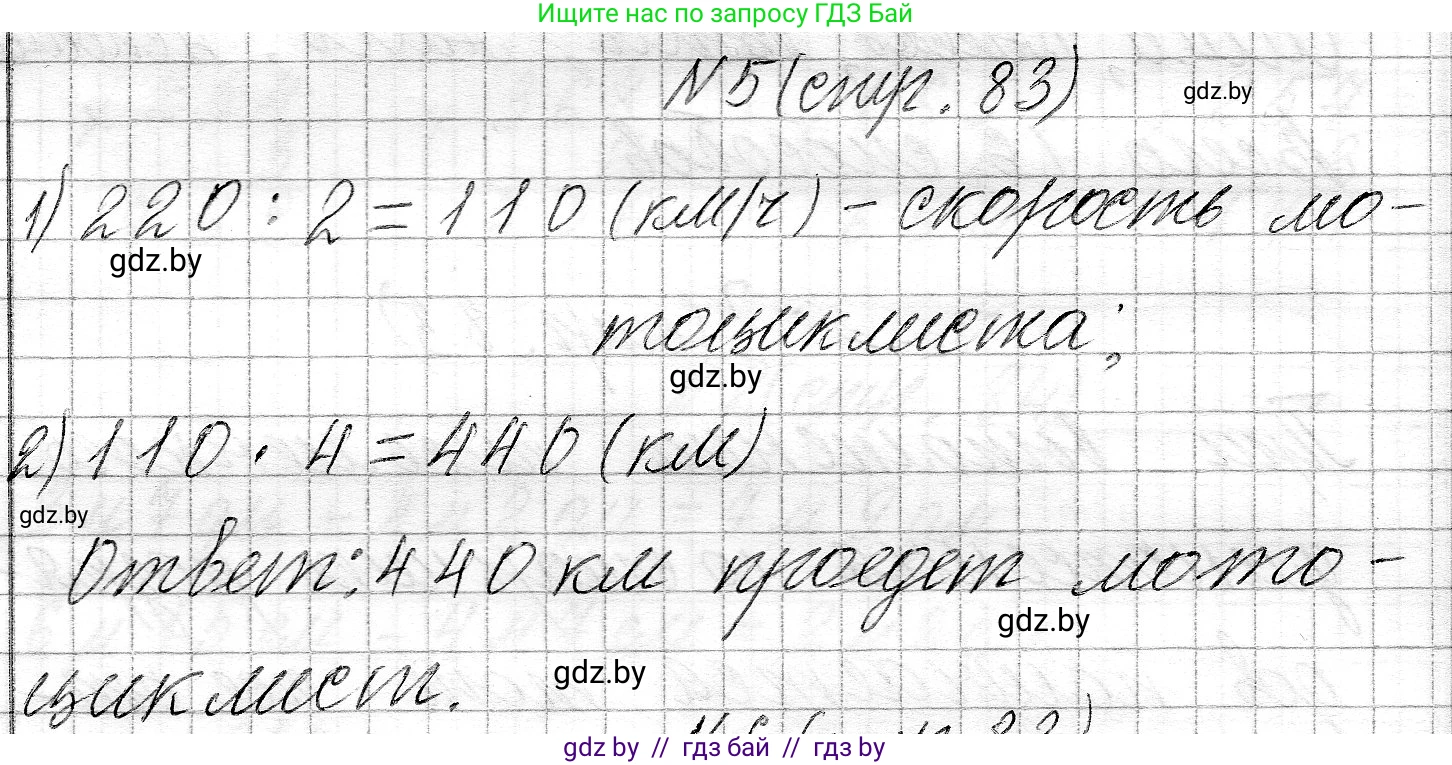 Ищите нас по запросу ГДЗ Бай
N 5 (стр. 83)
gdz.by
1) 220 : 2 = 110 (км/ч) - скорость мо-
gdz.by
тоциклиста;
gdz.by
2) 110 · 4 = 440 (км)
gdz.by
Ответ: 440 км проедет мото-
gdz.by
циклист.
gdz.by
gdz by // гдз бай // гдз by